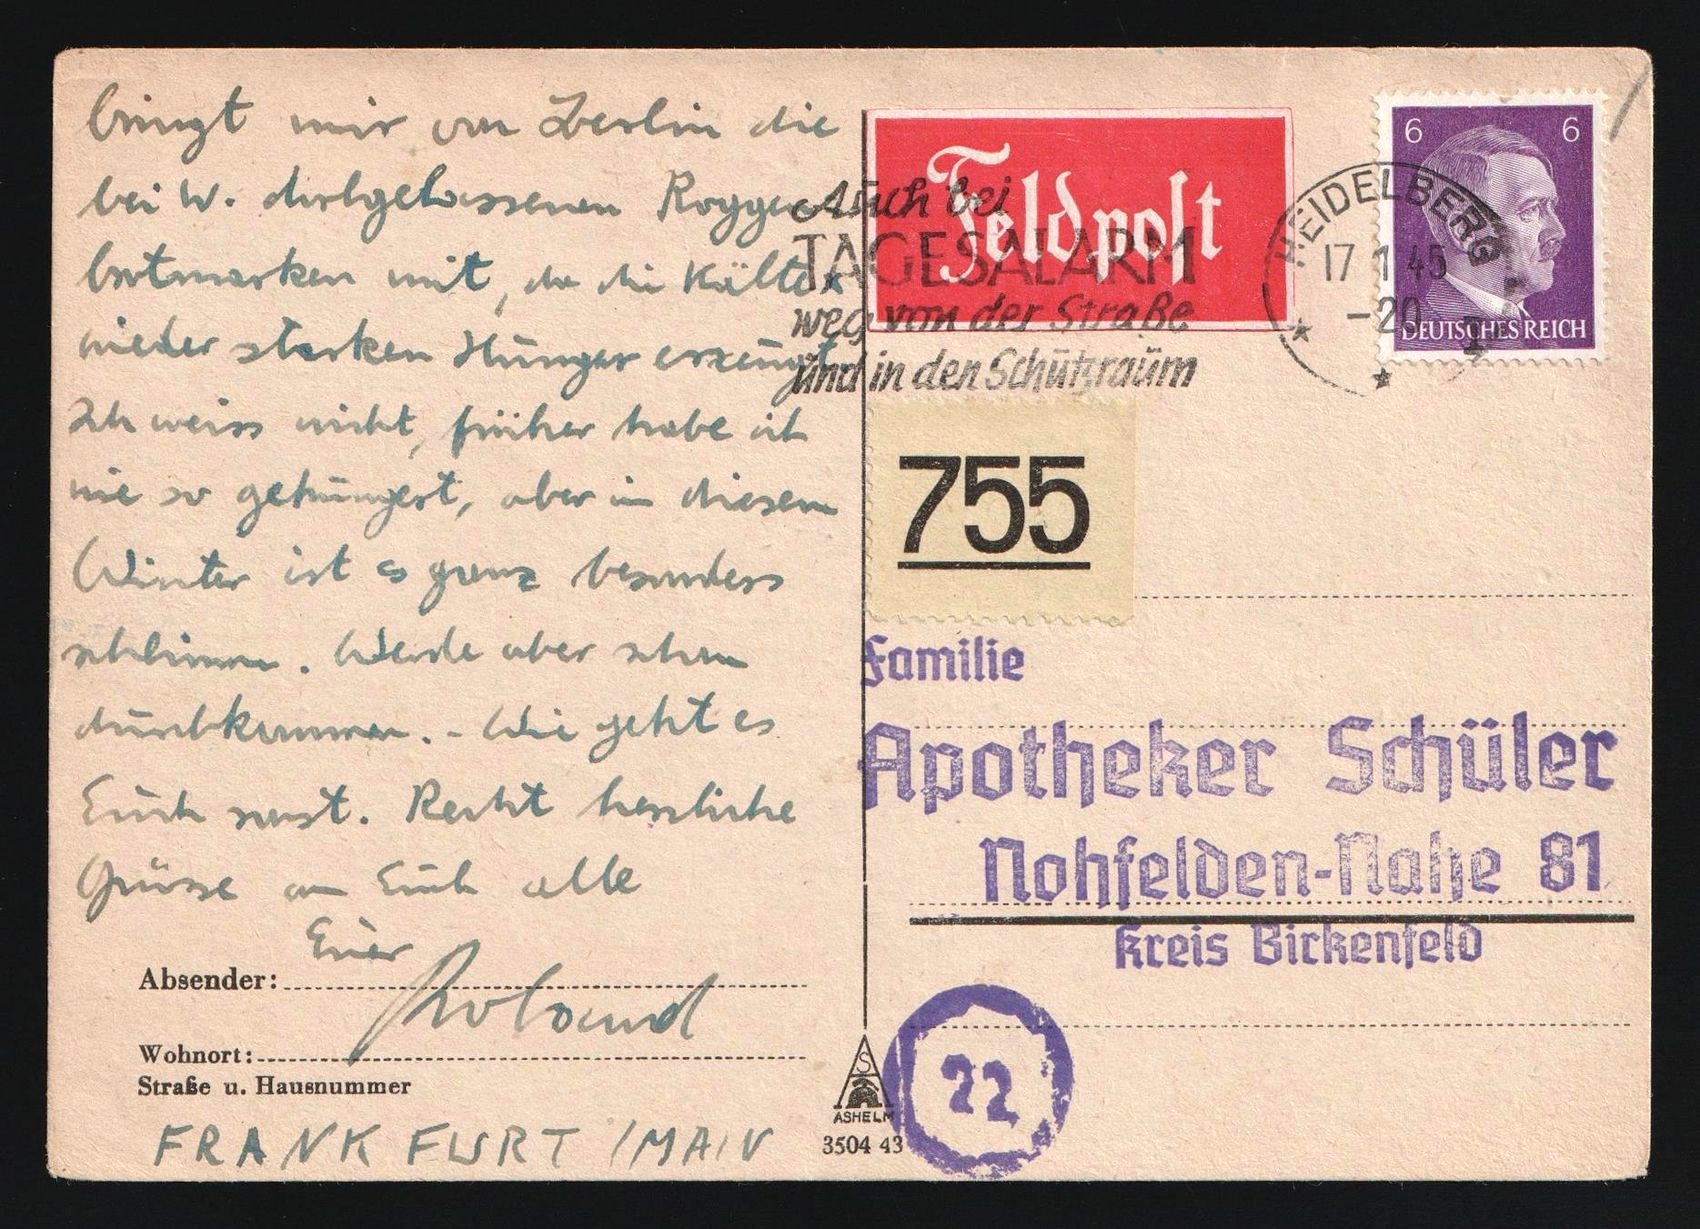 bringt mir von Berlin die
bei W. dortgelassenen Roggen
brotmarken mit, da die Kälte
wieder starken Hunger erzeugt.
Ich weiss nicht, früher habe ich
nie so gehungert, aber in diesem
Winter ist es ganz besonders
schlimm. Werde aber schon
durchkommen. - Wie geht es
Euch sonst. Recht herzliche
Grüsse an Euch alle
Euer
Roland
Absender:
Wohnort:
Straße u. Hausnummer
FRANKFURT /MAIN
Feldpost
Auch bei
TAGESALARM
weg von der Straße
und in den Schutzraum
HEIDELBERG
17 1 45
-20
6 6
DEUTSCHES REICH
755
Familie
Apotheker Schüler
Nohfelden-Nahe 81
Kreis Birkenfeld
AS
ASHELM
3504 43
22